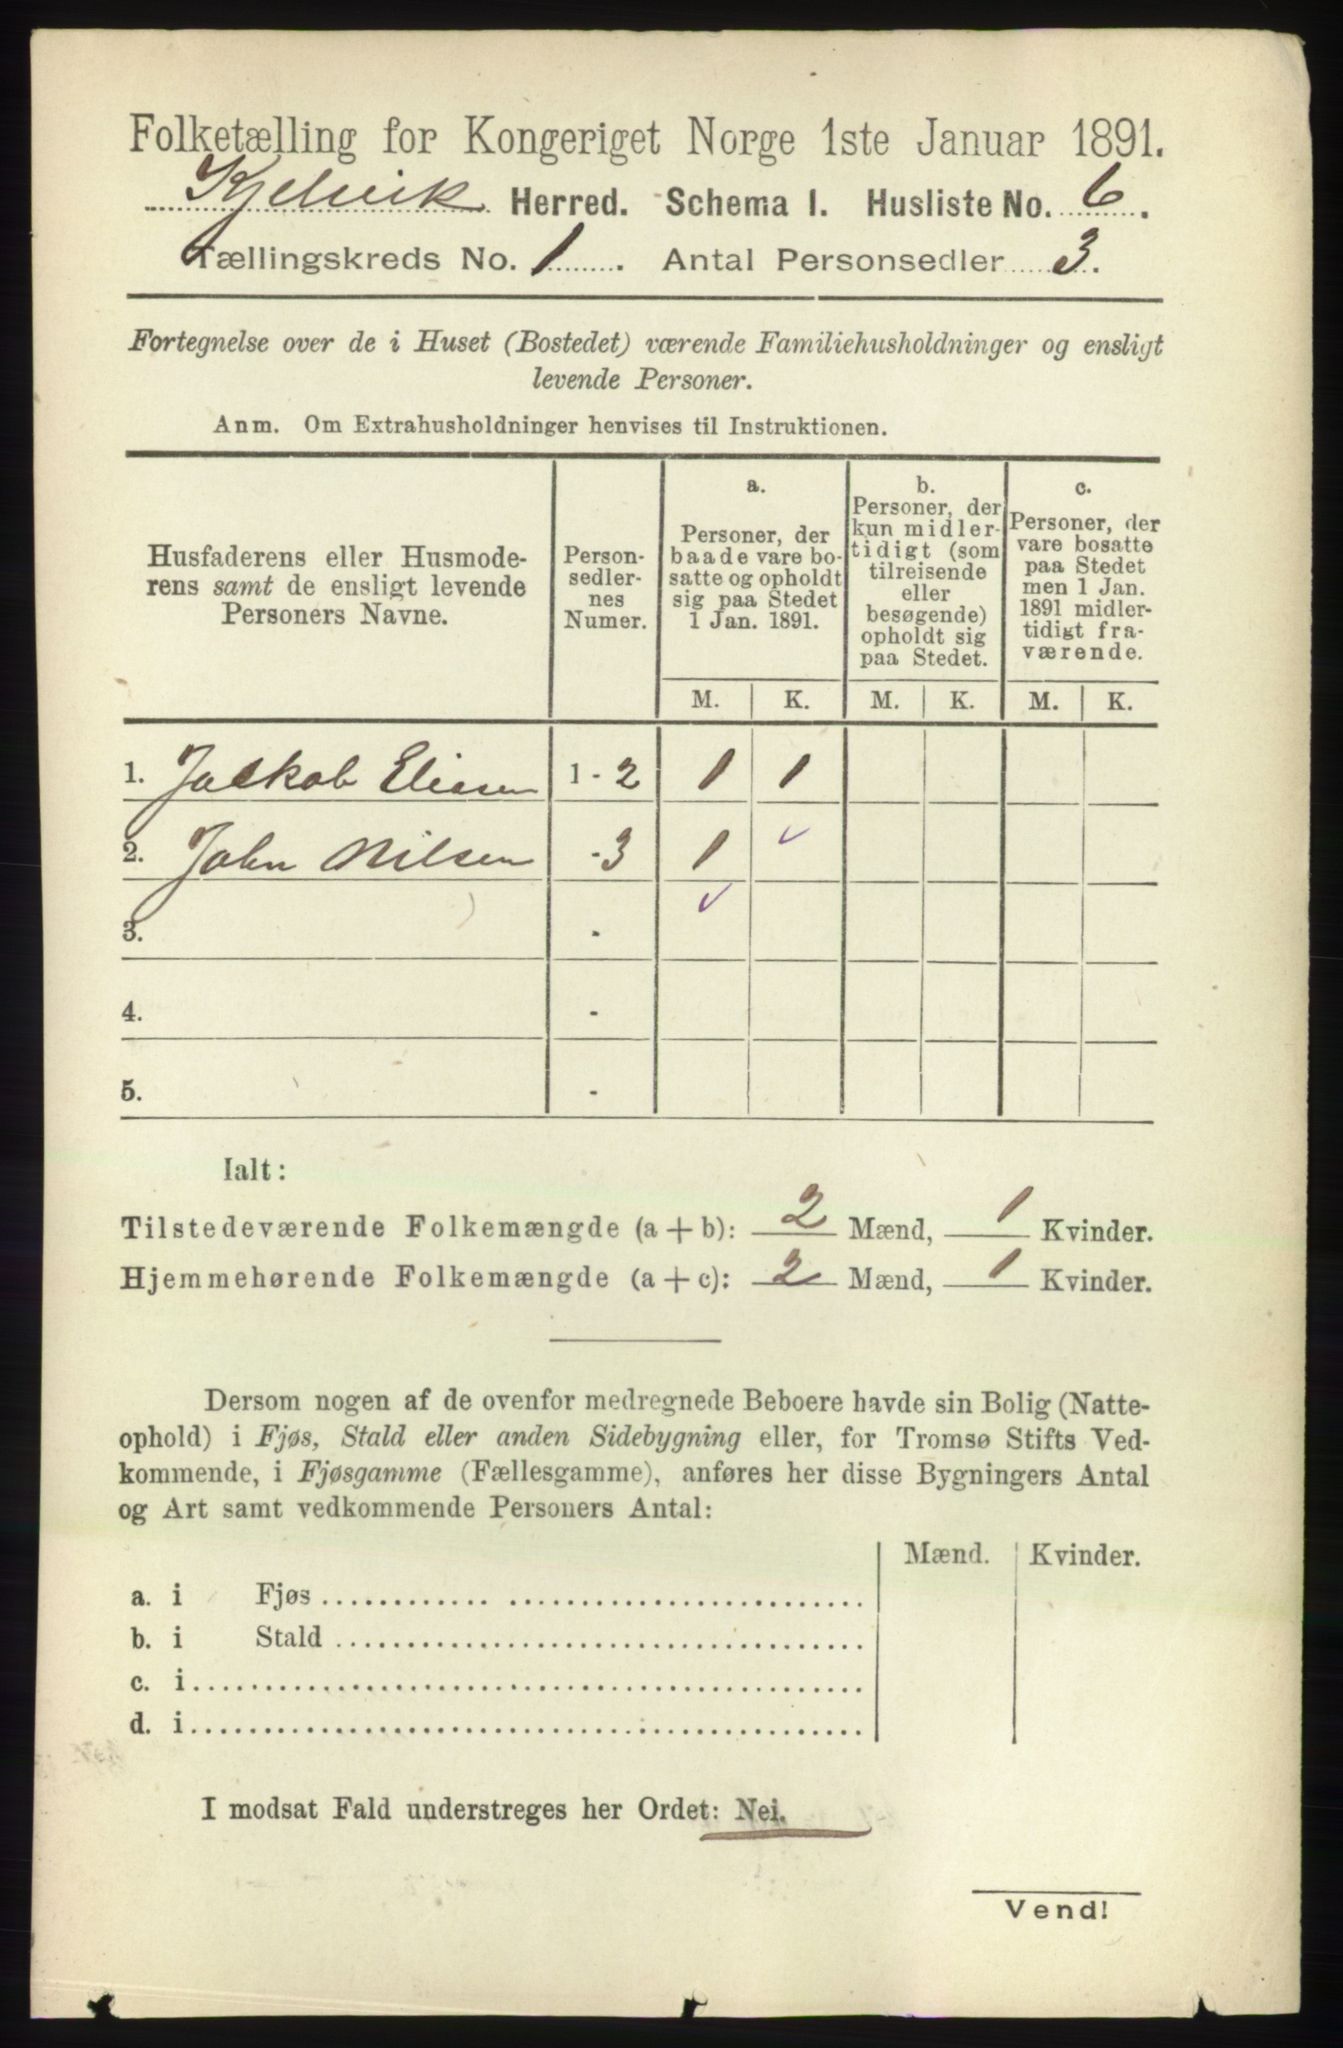 Folketælling for Kongeriget Norge 1ste Januar 1891.
Kjelvik Herred. Schema I. Husliste No. 6.
Tællingskreds No. 1. Antal Personsedler 3.
Fortegnelse over de i Huset (Bostedet) værende Familiehusholdninger og ensligt
levende Personer.
Anm. Om Extrahusholdninger henvises til Instruktionen.
Husfaderens eller Husmode-
rens samt de ensligt levende
Personers Navne.
Person-
sedler-
nes
Numer.
a.
Personer, der
baade vare bo-
satte og opholdt
sig paa Stedet
1 Jan. 1891.
b.
Personer, der
kun midler-
tidigt (som
tilreisende
eller
besøgende)
opholdt sig
paa Stedet.
c.
Personer, der
vare bosatte
paa Stedet
men 1 Jan.
1891 midler-
tidigt fra-
værende.
M. K. M. K. M. K.
1. Jackob Eliasen 1 - 2 1 1
2. John Nilsen - 3 1 ✓
3. - ✓
4. -
5. -
Ialt:
Tilstedeværende Folkemængde (a + b): 2 Mænd, 1 Kvinder.
Hjemmehørende Folkemængde (a + c): 2 Mænd, 1 Kvinder.
Dersom nogen af de ovenfor medregnede Beboere havde sin Bolig (Natte-
ophold) i Fjøs, Stald eller anden Sidebygning eller, for Tromsø Stifts Ved-
kommende, i Fjøsgamme (Fællesgamme), anføres her disse Bygningers Antal
og Art samt vedkommende Personers Antal:
Mænd. Kvinder.
a. i Fjøs
b. i Stald
c. i
d. i
I modsat Fald understreges her Ordet: Nei.
Vend!